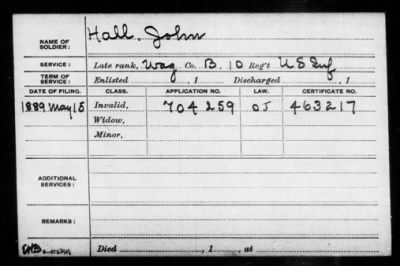 NAME OF SOLDIER: Hall, John
SERVICE: Late rank, Wag Co. B, 10 Reg't U S Inf
TERM OF SERVICE: Enlisted , 1 Discharged , 1
DATE OF FILING. CLASS. APPLICATION NO. LAW. CERTIFICATE NO.
1889 May 15 Invalid, 704259 OJ 463217
Widow,
Minor,
ADDITIONAL SERVICES:
REMARKS:
Died , 1 , at